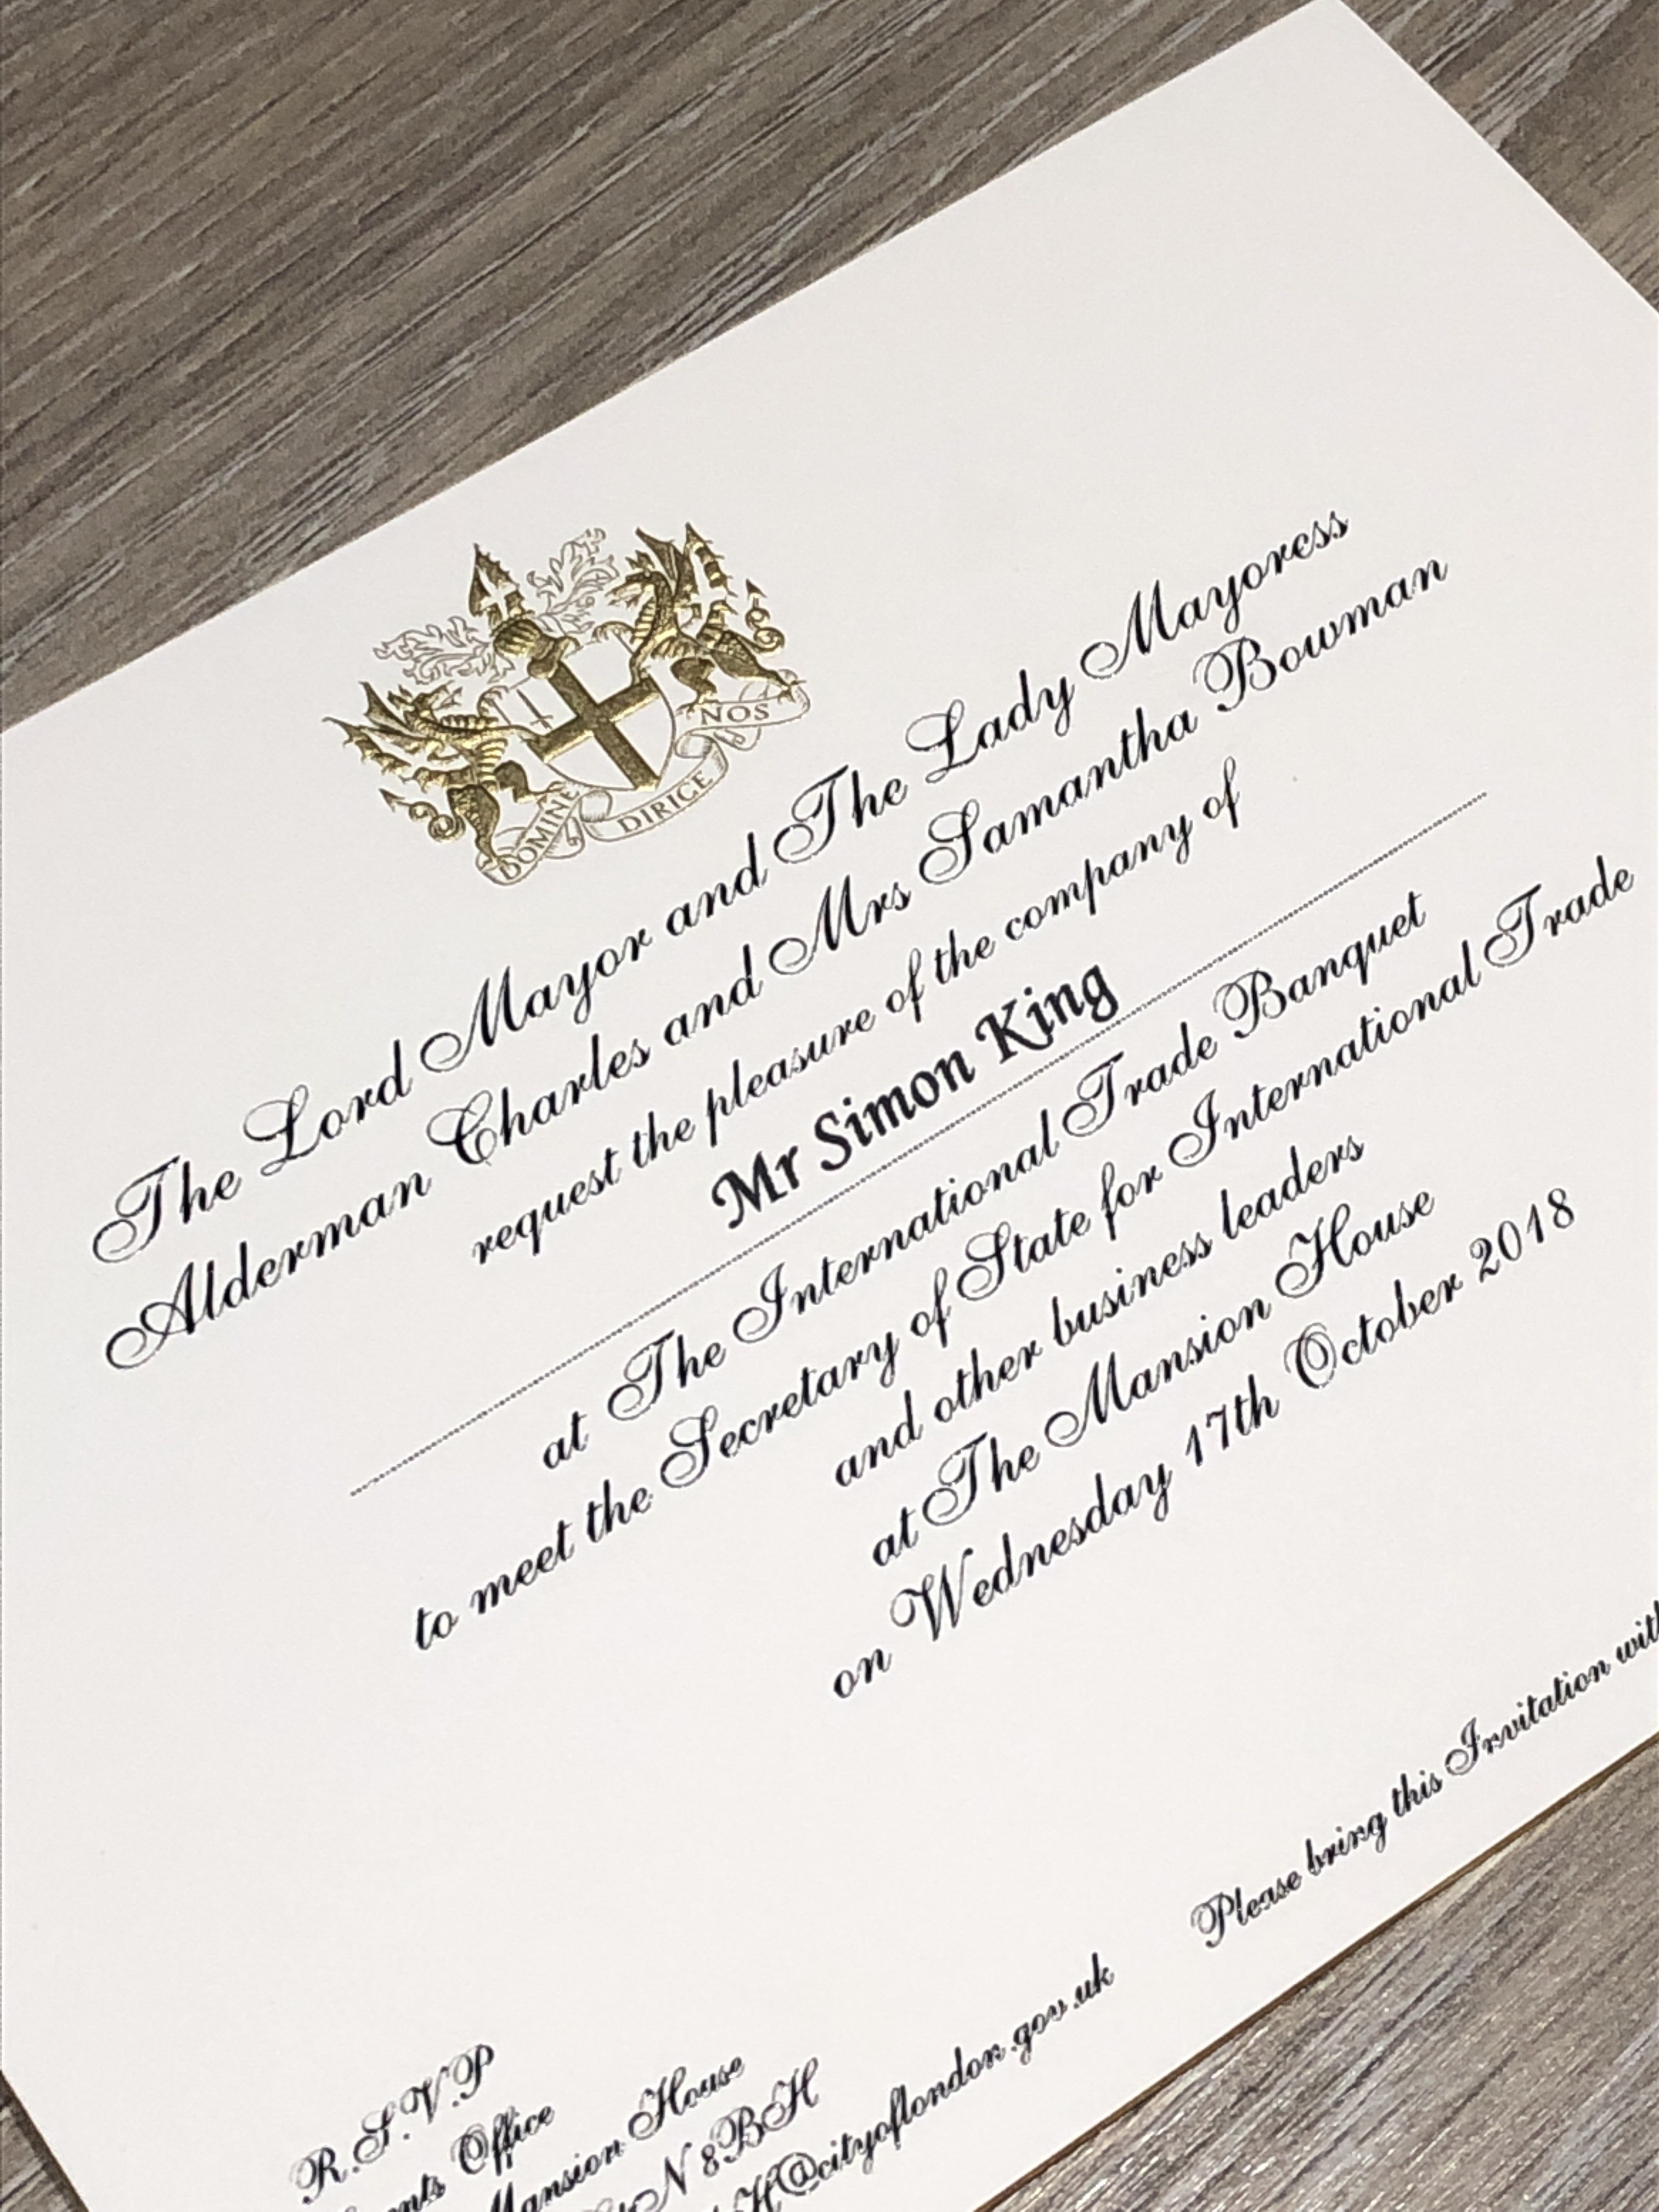 DOMINE DIRIGE NOS
The Lord Mayor and The Lady Mayoress
Alderman Charles and Mrs Samantha Bowman
request the pleasure of the company of
Mr Simon King
at The International Trade Banquet
to meet the Secretary of State for International Trade
and other business leaders
at The Mansion House
on Wednesday 17th October 2018
Please bring this Invitation with
R.S.V.P
Office
Mansion House
8BH
@cityoflondon.gov.uk